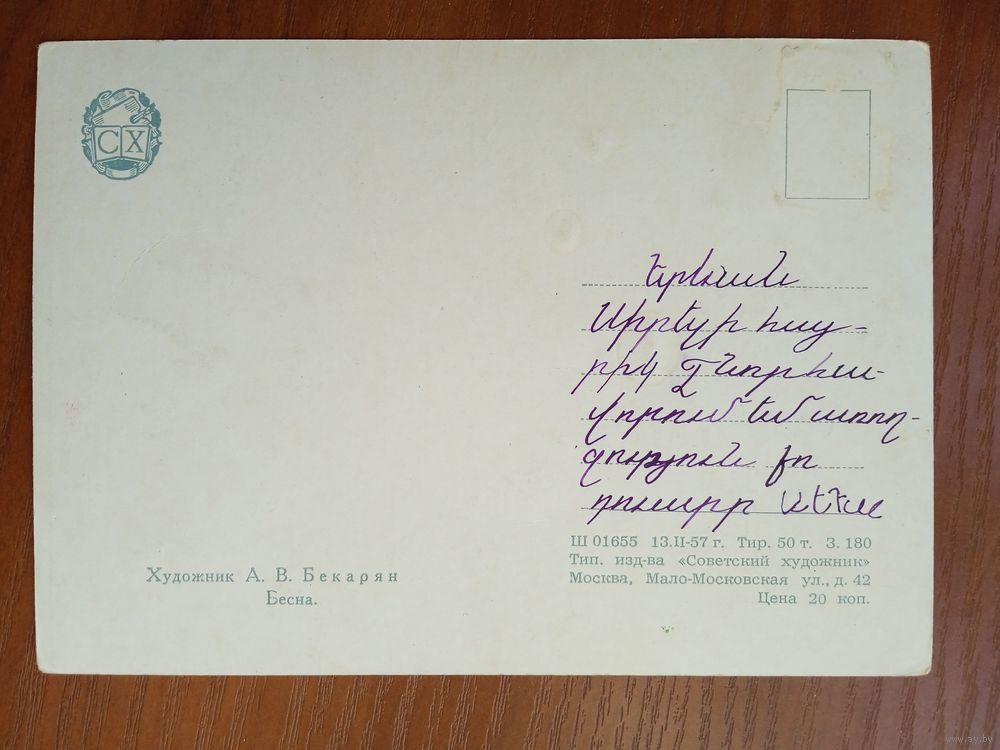 СХ
Երևան
Սիրելի հայ-
րիկ Շնորհա-
վորում եմ առող-
ջություն քո
դուստր
Художник А. В. Бекарян
Бесна.
Ш 01655 13.II-57 г. Тир. 50 т. З. 180
Тип. изд-ва «Советский художник»
Москва, Мало-Московская ул., д. 42
Цена 20 коп.
www.ay.by